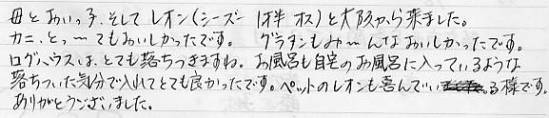 母とおいっ子、そしてレオン(シーズー 1才半 オス)と大阪から来ました。
カニ、とっ〜てもおいしかったです。 グラタンもみ〜んなおいしかったです。
ログハウスは、とても落ちつきますね。お風呂も自宅のお風呂に入っているような
落ちついた気分で入れてとても良かったです。ペットのレオンも喜んでいる様です。
ありがとうございました。